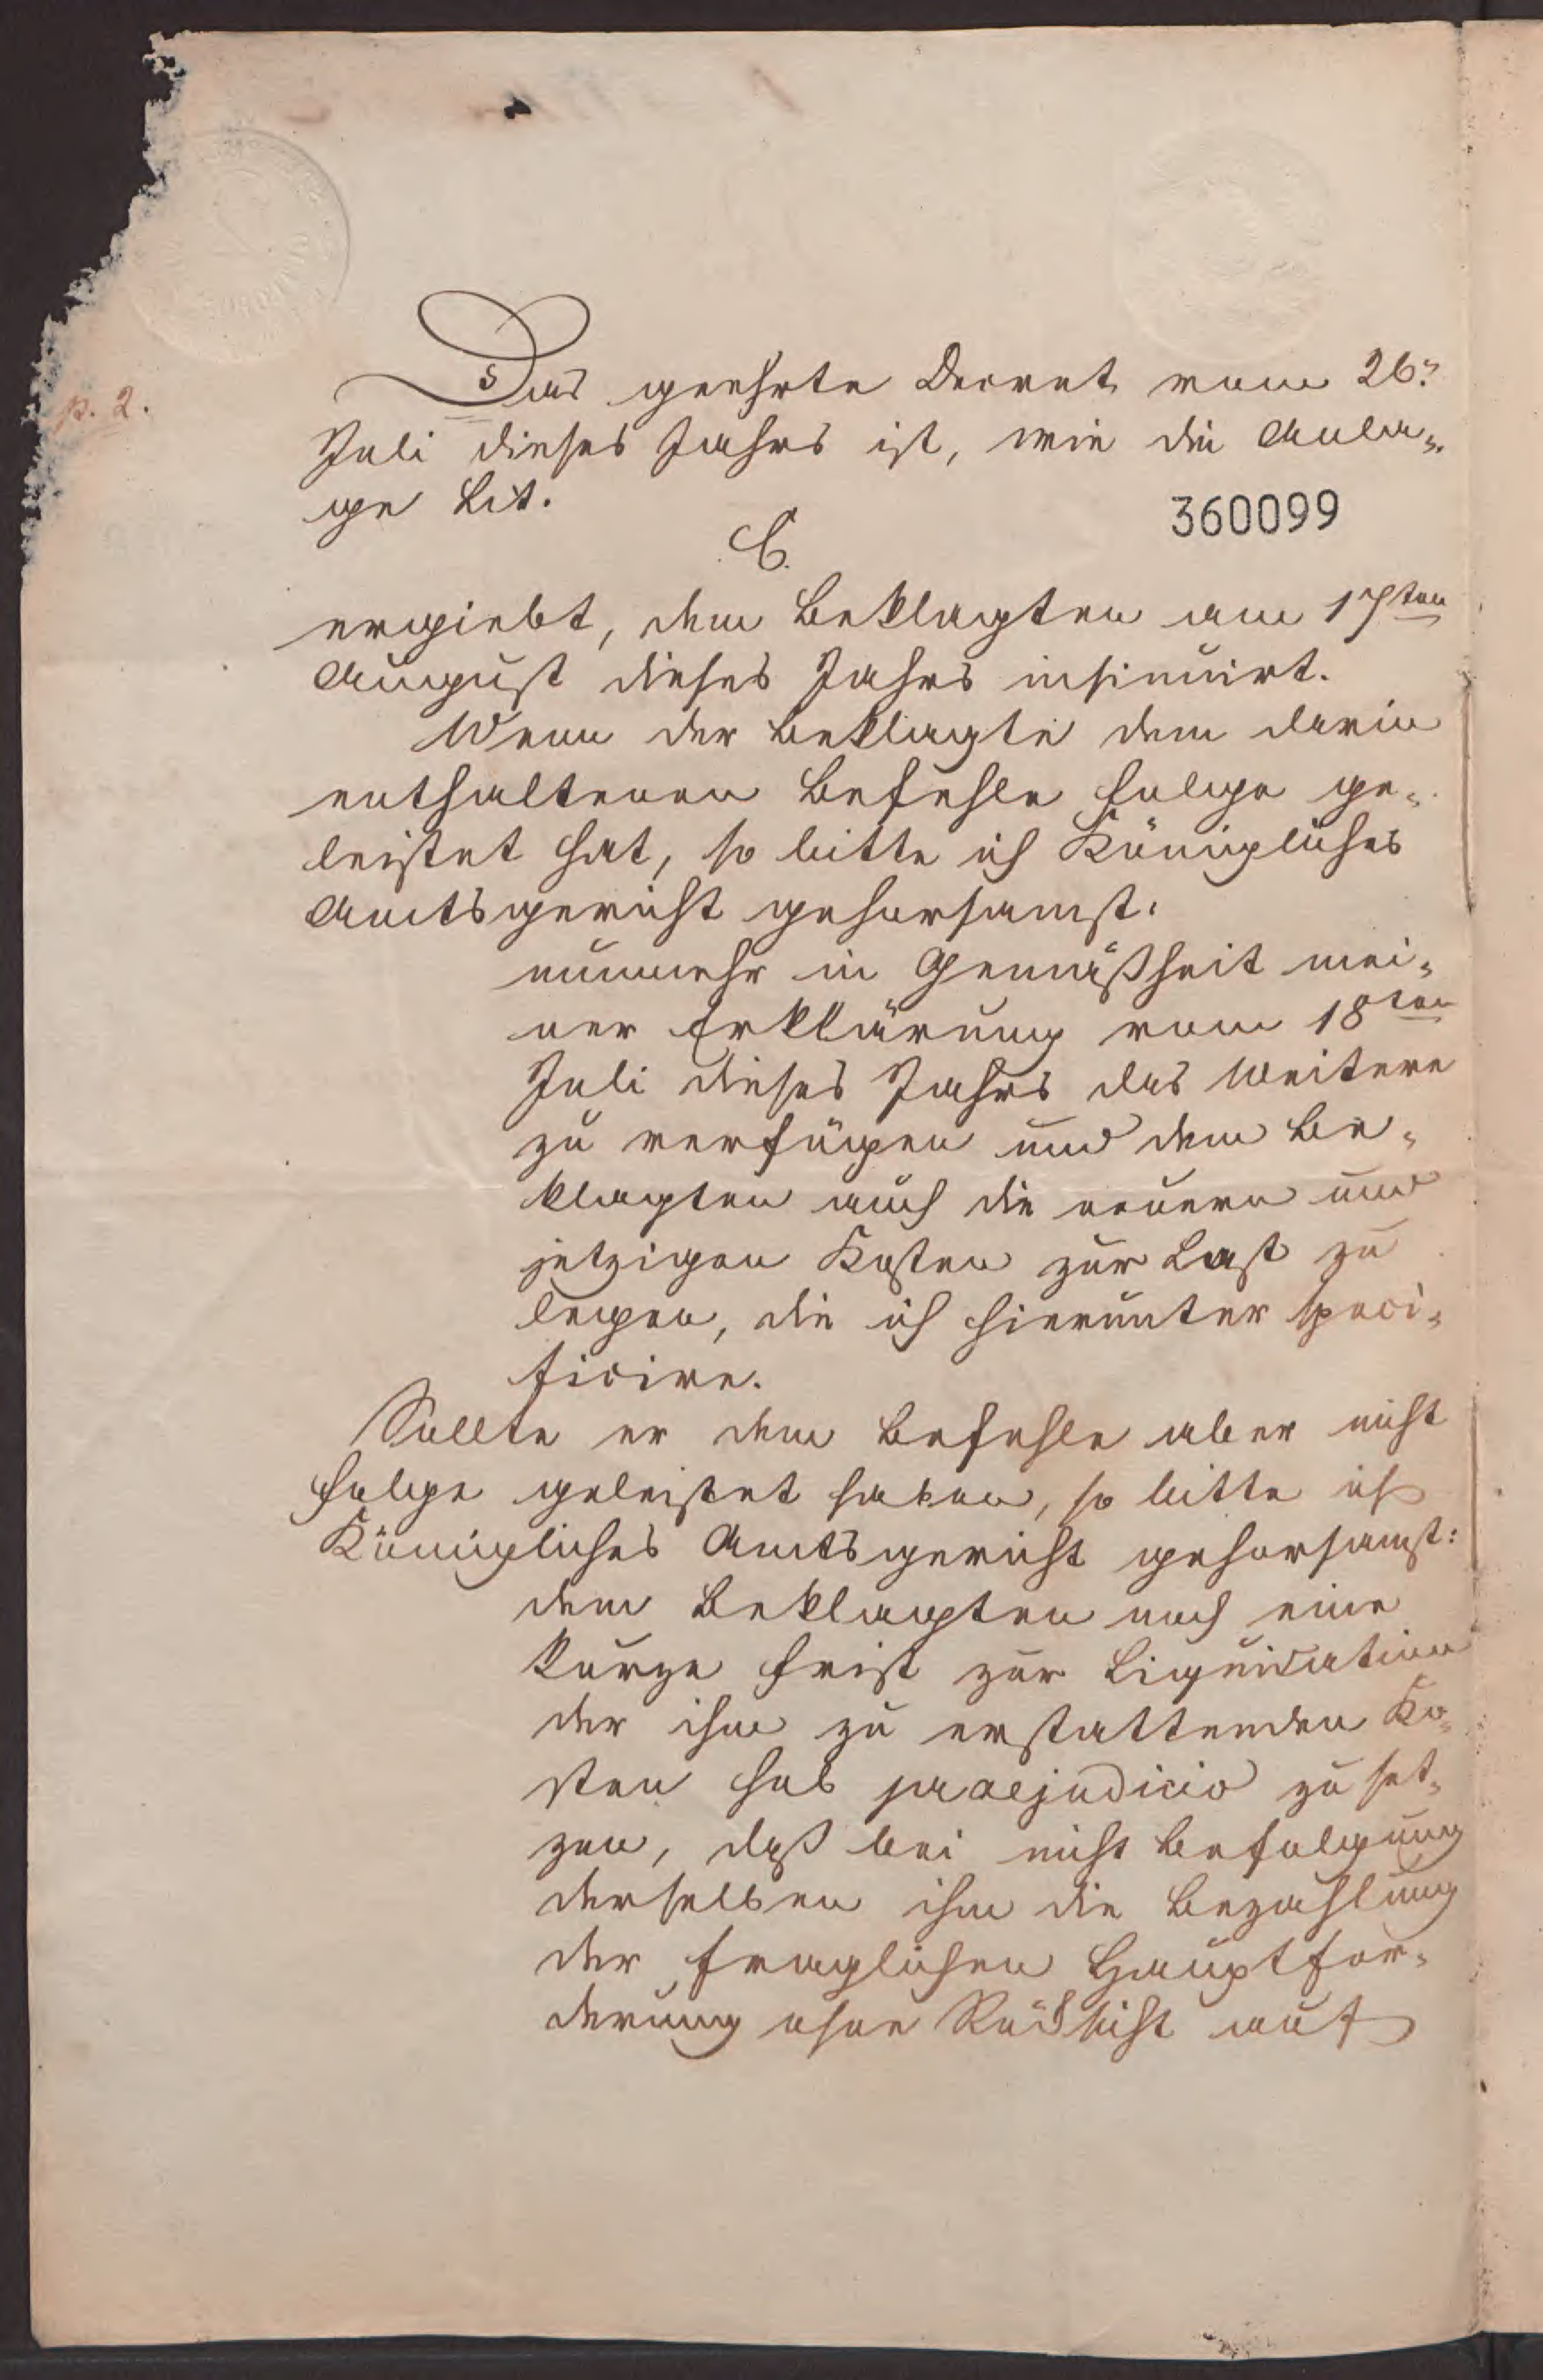 Das geehrte Decret vom 26.
p. 2.
Juli dieses Jahrs ist, wie die Anla„
ge Lit.
360099
C.
ergiebt, dem Beklagten am 17ten
August dieses Jahrs insinuirt.
Wenn der Beklagte dem darin
enthaltenen Befehle Folge ge„
leistet hat, so bitte ich Königliches
Amtsgericht gehorsamst:
nunmehr in Gemäßheit mei„
ner Erklärung vom 18ten
Juli dieses Jahrs das Weitere
zu verfügen und dem Be„
klagten auch die neuern und
jetzigen Kosten zur Last zu
legen, die ich hierunter speci„
ficire.
Sollte er dem Befehle aber nicht
Folge geleistet haben, so bitte ich
Königliches Amtsgericht gehorsamst:
dem Beklagten noch eine
kurze Frist zur Liquidation
der ihm zu erstattenden Ko„
sten sub praejudicio zu set„
zen, daß bei nicht Befolgung
derselben ihm die Bezahlung
der fraglichen Hauptfor„
derung ohne Rücksicht auf